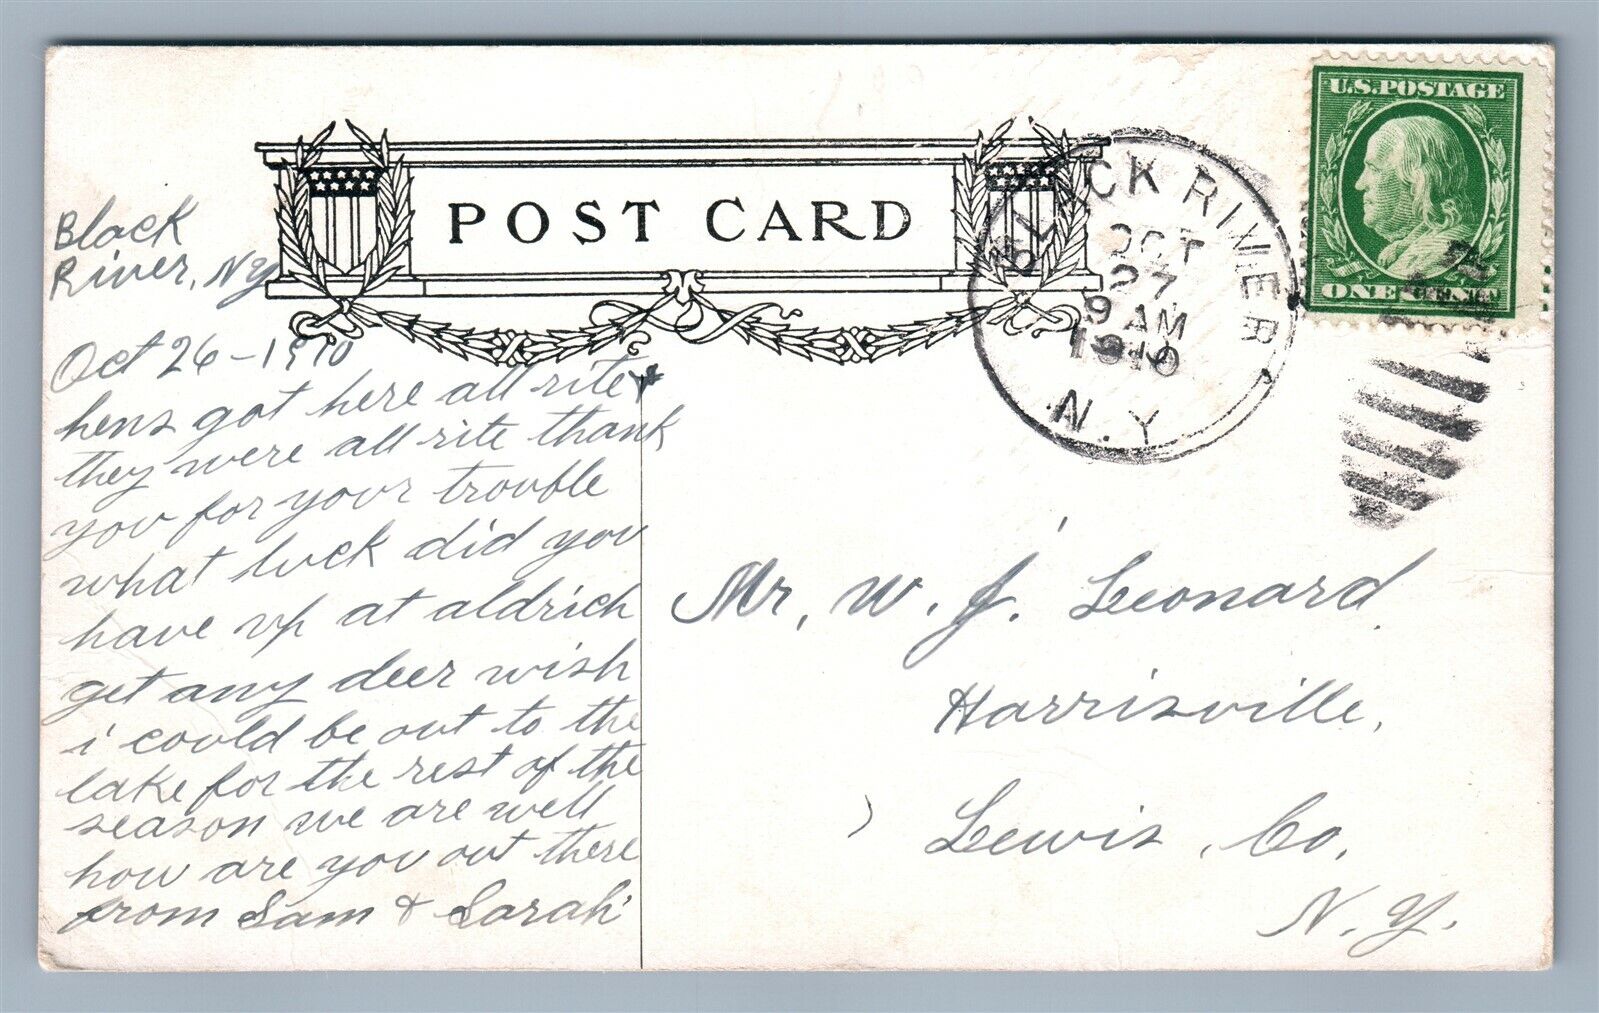 POST CARD
BLACK RIVER
OCT
27
9 AM
1910
N.Y.
U.S. POSTAGE
ONE CENT
Black
River, NY
Oct 26-1910
hens got here all rite &
they were all rite thank
you for your trouble
what luck did you
have up at aldrich
get any deer wish
i could be out to the
lake for the rest of the
season we are well
how are you out there
from Sam & Sarah
Mr, W. J. Leonard
Harrisville,
Lewis, Co,
N. Y.